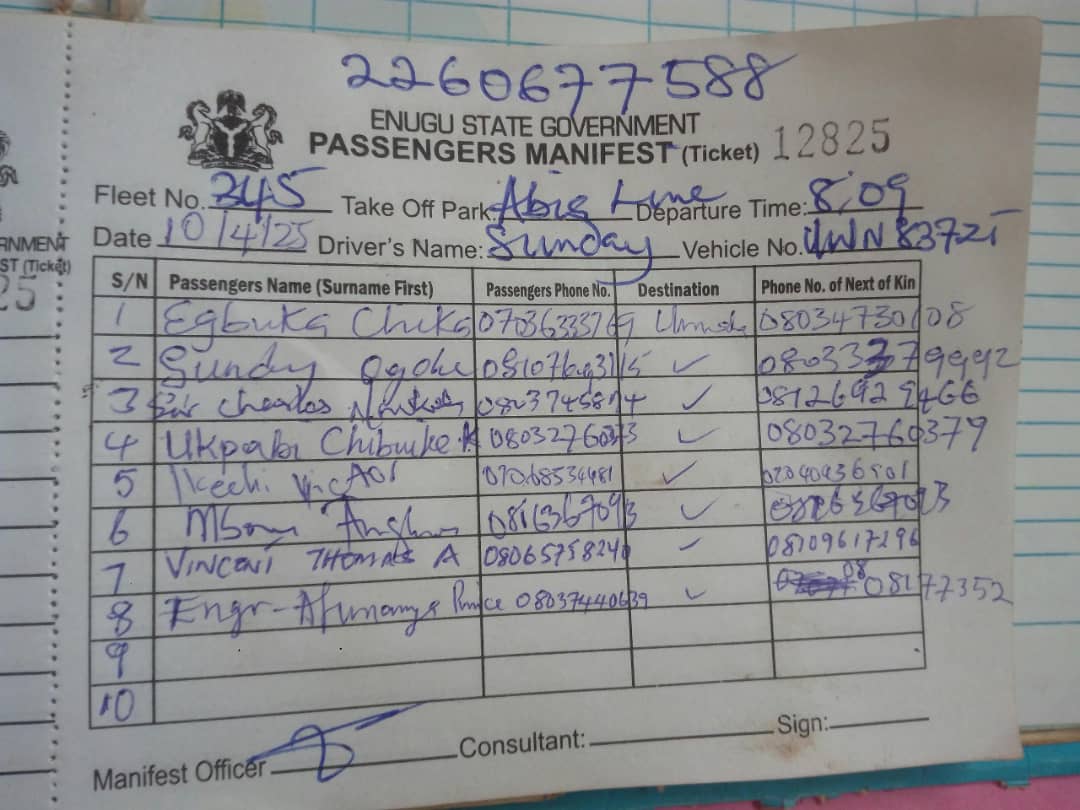 2260677588
ENUGU STATE GOVERNMENT
PASSENGERS MANIFEST (Ticket) 12825
Fleet No. 345 Take Off Park: Abia Line Departure Time: 8:09
Date 10/4/25 Driver's Name: Sunday Vehicle No. UWN 837ZT
S/N Passengers Name (Surname First) Passengers Phone No. Destination Phone No. of Next of Kin
1 Egbuka Chika 07036333769 08034730108
2 Sunday Ogohe ✓
3 Sir Charles ✓ 08126929466
4 Ukpabi Chibuike K 08032760373 ✓ 08032760379
5 Ikechi 07068534481 ✓
6 08163670913 ✓
7 VINCENT THOMAS A 08065758240 ✓ 08109617296
8 Engr- Afunanya Prince 08037440639 ✓ 08177352
9
10
Manifest Officer Consultant: Sign:
RNMENT
ST (Ticket)
25